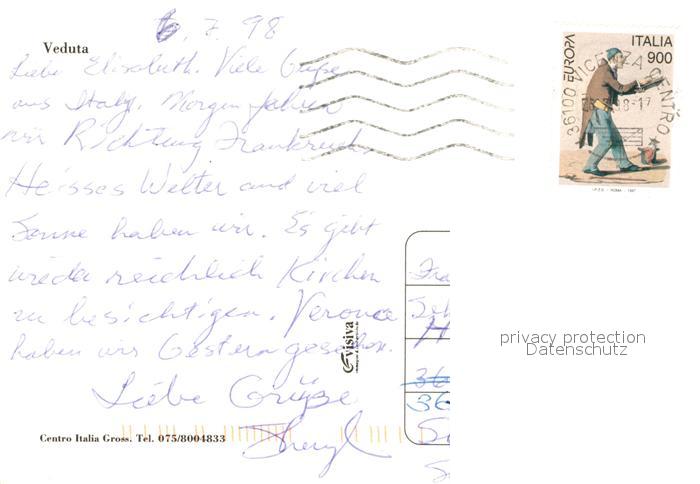 6. 7. 98
Veduta
Liebe Elisabeth. Viele Grüße
aus Italy. Morgen fahren
wir Richtung Frankreich.
Heisses Wetter und viel
Sonne haben wir. Es gibt
wieder reichlich Kirchen
zu besichtigen. Verona
haben wir Gestern gesehen.
Liebe Grüße
Sheryl
Centro Italia Gross. Tel. 075/8004833
visiva
ITALIA
900
EUROPA
36100 VICENZA CENTRO
I.P.Z.S. - ROMA - 1997
Fra
H
36
36
privacy protection
Datenschutz